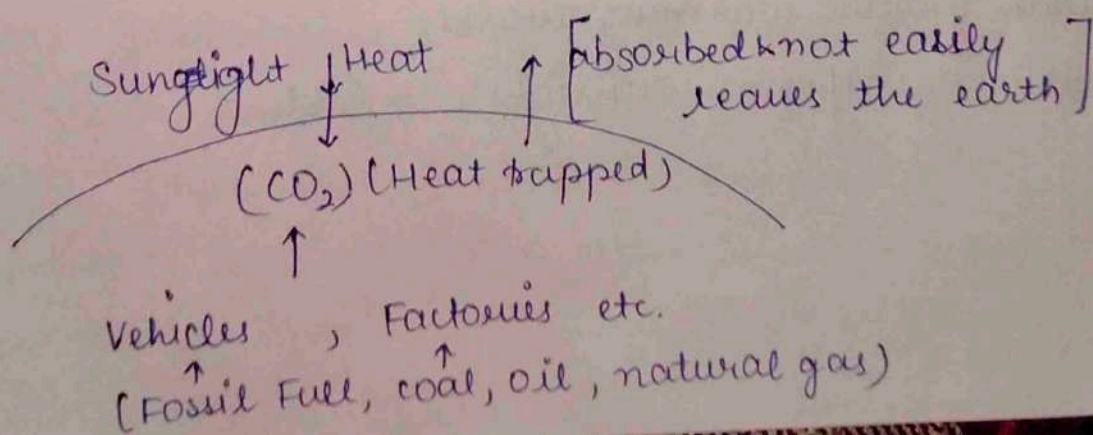 Sunglight ↓ Heat ↑ [absorbed & not easily
leaves the earth]
(CO₂) (Heat trapped)
↑
Vehicles , Factories etc.
↑ ↑
(Fossil Fuel, coal, oil, natural gas)